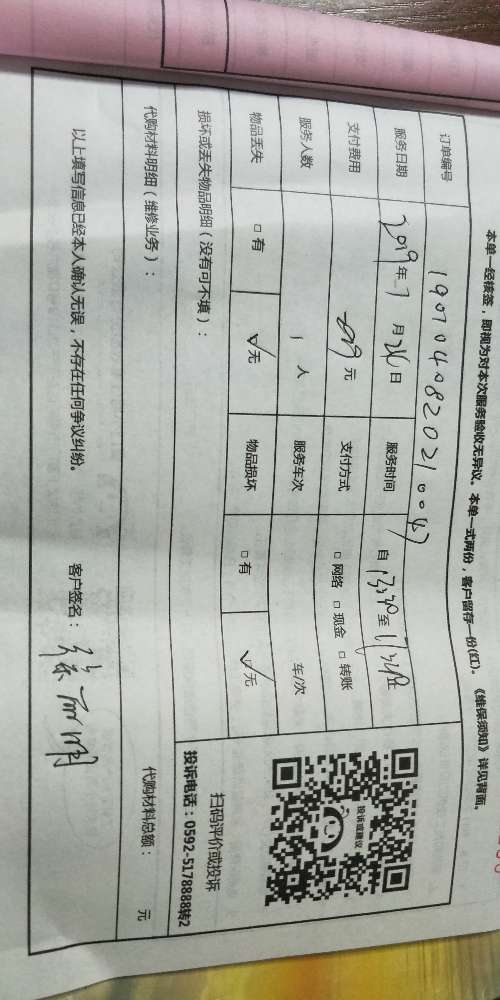 本单一经核签，即视为对本次服务验收无异议。本单一式两份，客户留存一份(红)。《维保须知》详见背面。
订单编号
服务日期 2019年7月24日 服务时间 自 至 止
支付费用 299元 支付方式 □网络 □现金 □转账
服务人数 1人 服务车次 车/次
物品丢失 □有 ✓无 物品损坏 □有 ✓无
损坏或丢失物品明细（没有可不填）：
投诉或建议
扫码评价或投诉
投诉电话：0592-5178888转2
代购材料明细（维修业务）： 代购材料总额： 元
以上填写信息已经本人确认无误，不存在任何争议纠纷。 客户签名：